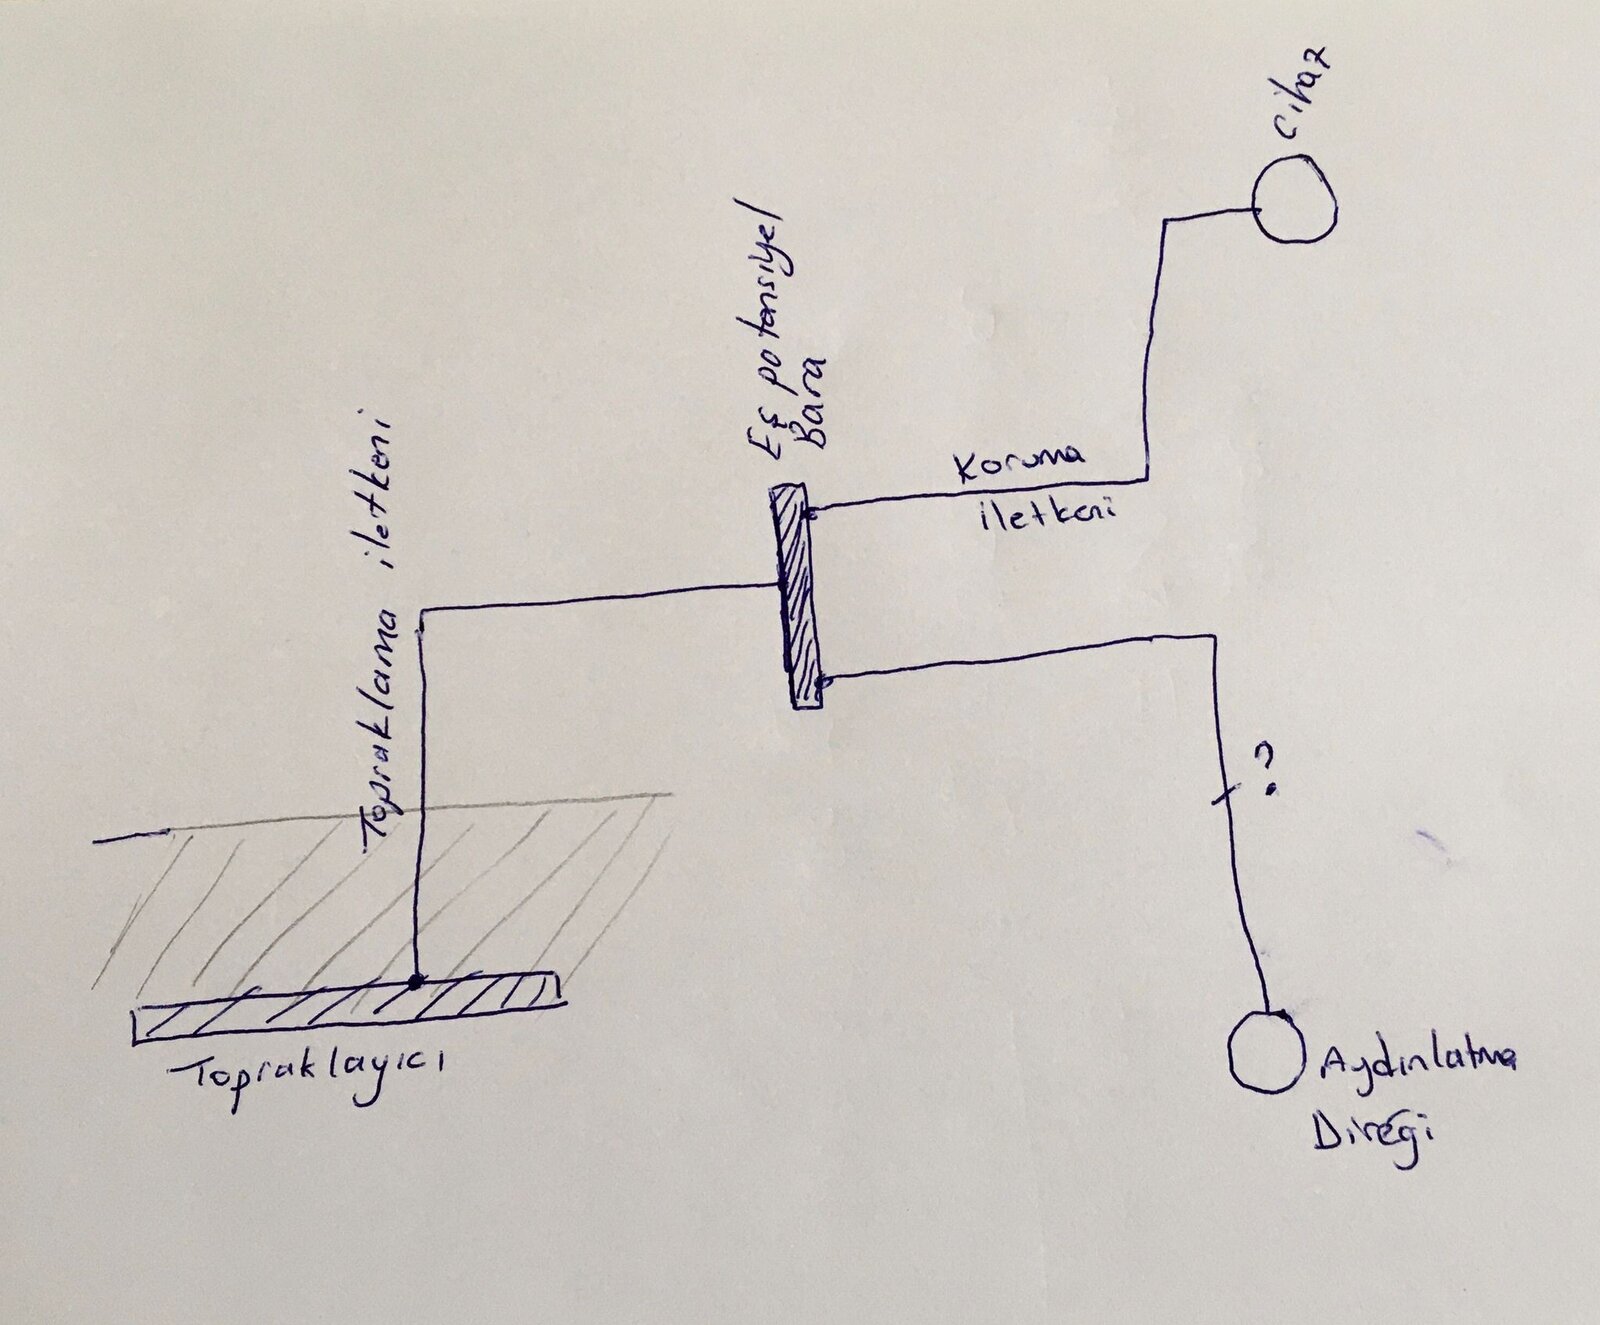 Topraklama iletkeni
Eş potansiyel
Bara
Koruma
iletkeni
Cihaz
?
Topraklayıcı
Aydınlatma
Direği